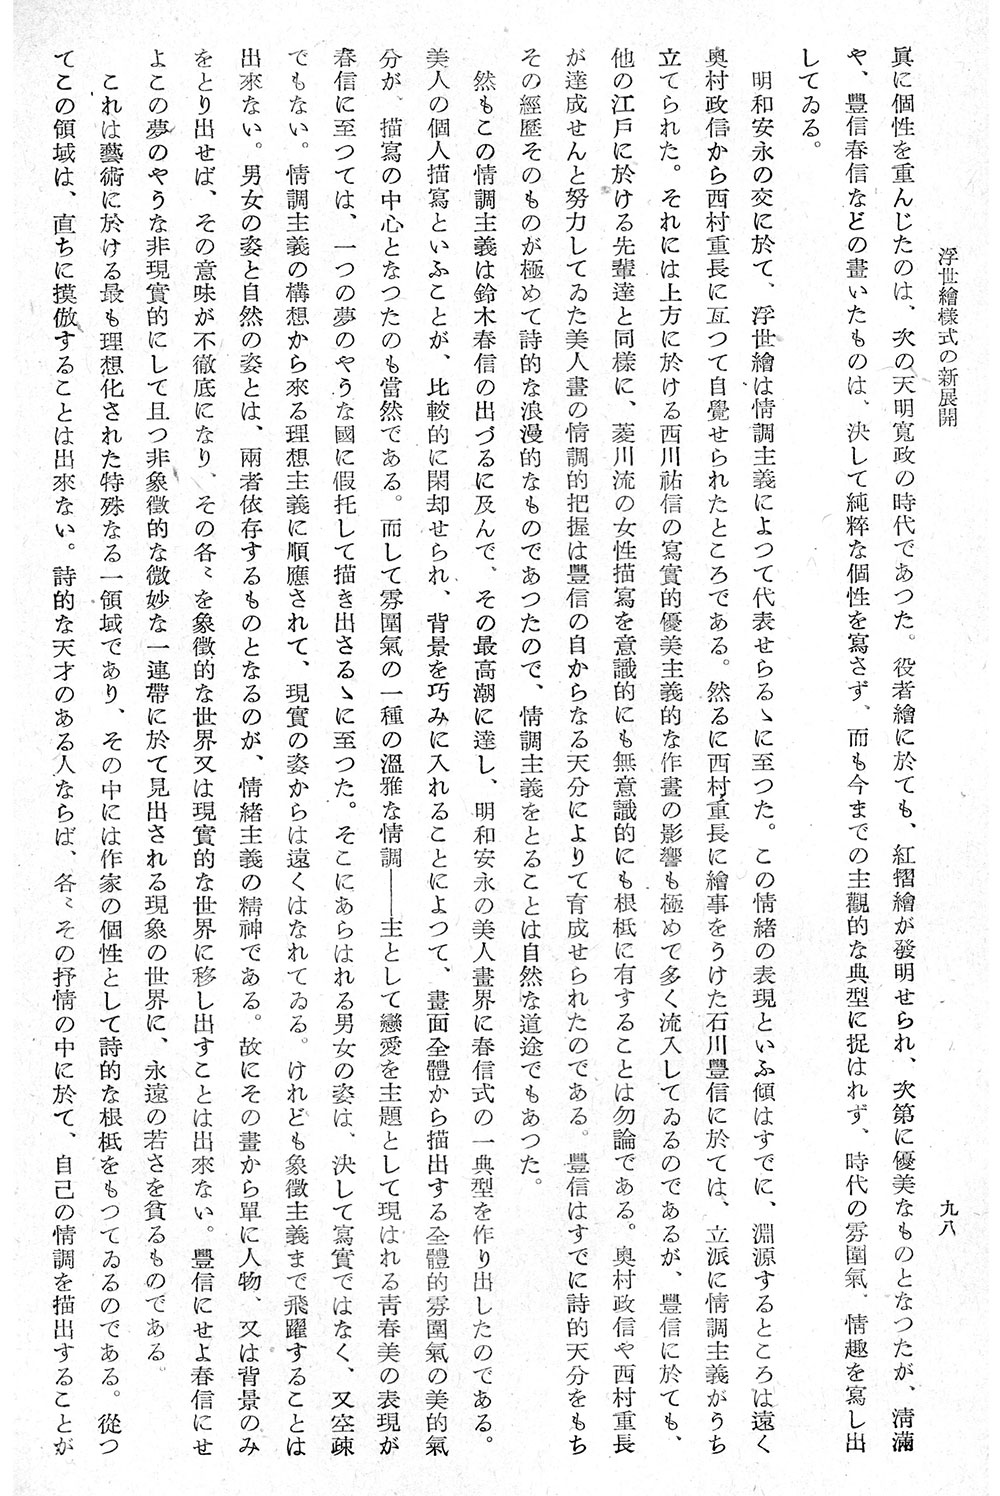 浮世繪樣式の新展開
九八
眞に個性を重んじたのは、次の天明寬政の時代であつた。役者繪に於ても、紅摺繪が發明せられ、次第に優美なものとなつたが、淸滿
や、豐信春信などの畫いたものは、決して純粹な個性を寫さず、而も今までの主觀的な典型に捉はれず、時代の雰圍氣、情趣を寫し出
してゐる。
明和安永の交に於て、浮世繪は情調主義によつて代表せらるゝに至つた。この情緖の表現といふ傾はすでに、淵源するところは遠く
奧村政信から西村重長に亙つて自覺せられたところである。然るに西村重長に繪事をうけた石川豐信に於ては、立派に情調主義がうち
立てられた。それには上方に於ける西川祐信の寫實的優美主義的な作畫の影響も極めて多く流入してゐるのであるが、豐信に於ても、
他の江戶に於ける先輩達と同樣に、菱川流の女性描寫を意識的にも無意識的にも根柢に有することは勿論である。奧村政信や西村重長
が達成せんと努力してゐた美人畫の情調的把握は豐信の自からなる天分によりて育成せられたのである。豐信はすでに詩的天分をもち
その經歷そのものが極めて詩的な浪漫的なものであつたので、情調主義をとることは自然な道途でもあつた。
然もこの情調主義は鈴木春信の出づるに及んで、その最高潮に達し、明和安永の美人畫界に春信式の一典型を作り出したのである。
美人の個人描寫といふことが、比較的に閑却せられ、背景を巧みに入れることによつて、畫面全體から描出する全體的雰圍氣の美的氣
分が、描寫の中心となつたのも當然である。而して雰圍氣の一種の溫雅な情調――主として戀愛を主題として現はれる靑春美の表現が
春信に至つては、一つの夢のやうな國に假托して描き出さるゝに至つた。そこにあらはれる男女の姿は、決して寫實ではなく、又空疎
でもない。情調主義の構想から來る理想主義に順應されて、現實の姿からは遠くはなれてゐる。けれども象徵主義まで飛躍することは
出來ない。男女の姿と自然の姿とは、兩者依存するものとなるのが、情緖主義の精神である。故にその畫から單に人物、又は背景のみ
をとり出せば、その意味が不徹底になり、その各〻を象徵的な世界又は現實的な世界に移し出すことは出來ない。豐信にせよ春信にせ
よこの夢のやうな非現實的にして且つ非象徵的な微妙な一連帶に於て見出される現象の世界に、永遠の若さを貧るものである。
これは藝術に於ける最も理想化された特殊なる一領域であり、その中には作家の個性として詩的な根柢をもつてゐるのである。從つ
てこの領域は、直ちに摸倣することは出來ない。詩的な天才のある人ならば、各〻その抒情の中に於て、自己の情調を描出することが